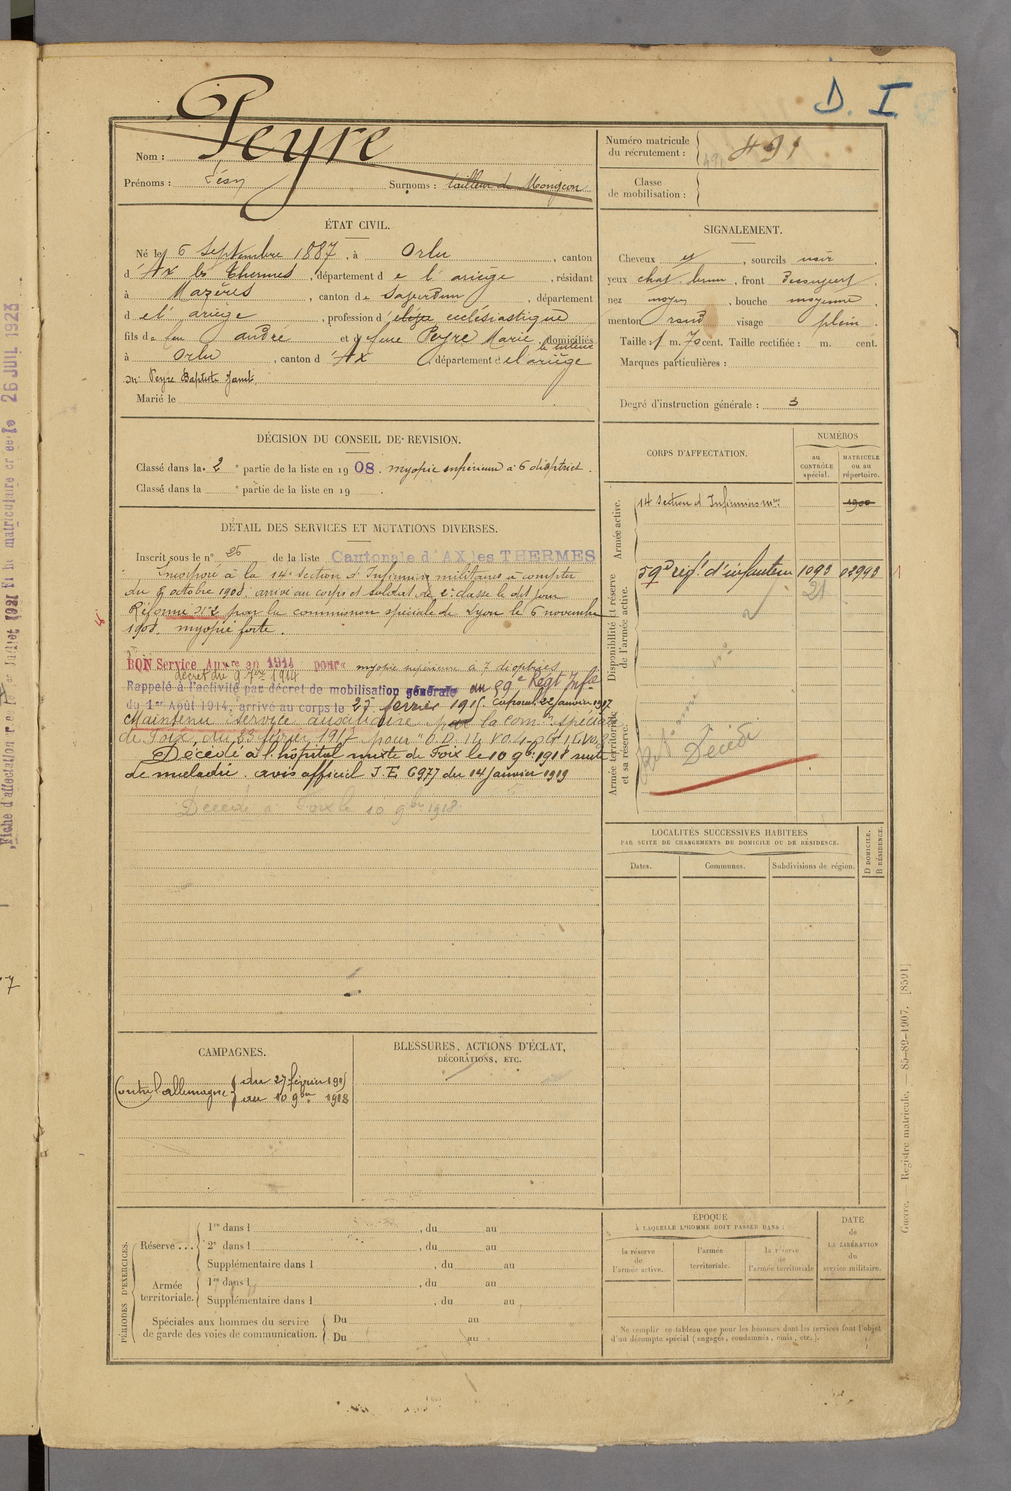 D. I
Peyre
Nom :
Prénoms :
Surnoms :
Numéro matricule
du recrutement :
491
Classe
de mobilisation :
ÉTAT CIVIL.
Né le 6 Septembre 1887, à Orlu, canton
d'Ax les Thermes, département de l'ariège, résidant
à Mazères, canton de Saverdun, département
de l'ariège, profession d' élève ecclésiastique
fils de feu andré et de feue Peyre Marie, domiciliés
à Orlu, canton d'Ax département de l'ariège
Mr Peyre Baptiste
Marié le
SIGNALEMENT.
Cheveux, sourcils noir,
yeux chat. brun, front
nez moyen, bouche moyenne,
menton rond visage plein.
Taille : 1 m. 70 cent. Taille rectifiée : m. cent.
Marques particulières :
Degré d'instruction générale : 3
DÉCISION DU CONSEIL DE REVISION.
Classé dans la 2e partie de la liste en 1908. myopie supérieure à 6 dioptries.
Classé dans la e partie de la liste en 19 .
CORPS D'AFFECTATION.
NUMÉROS
au
CONTRÔLE
spécial.
MATRICULE
ou au
répertoire.
Armée active.
14 Section d'Infirmiers mres
1900
Disponibilité et réserve
de l'armée active.
59e régt. d'infanterie 1093 02993
21
Armée territoriale
et sa réserve.
Décédé
DÉTAIL DES SERVICES ET MUTATIONS DIVERSES.
Inscrit sous le n° 26 de la liste Cantonale d'AX les THERMES
Incorporé à la 14e Section d'Infirmiers militaires à compter
du 9 octobre 1908. arrivé au corps et soldat de 2e classe le dit jour
Réformé n° 2 par la commission spéciale de Lyon le 6 novembre
1908. myopie forte.
BON Service Auxre en 1914 pour myopie supérieure à 7 dioptries
décret du 9 7bre 1914
Rappelé à l'activité par décret de mobilisation générale au 59e Régt Infie
du 1er Août 1914, arrivé au corps le 27 février 1915. Caporal 22 janvier 1917
Maintenu service auxiliaire par la comon spéciale
de Foix, du 28 février 1917 pour
Décédé à l'hôpital mixte de Foix le 10 9bre 1918 suite
de maladie. avis officiel J.E. 6977 du 14 janvier 1919
Décédé à Foix le 10 9bre 1918
LOCALITÉS SUCCESSIVES HABITÉES
PAR SUITE DE CHANGEMENTS DE DOMICILE OU DE RÉSIDENCE.
Dates.
Communes.
Subdivisions de région.
D DOMICILE.
R RÉSIDENCE.
CAMPAGNES.
Contre l'allemagne
du 27 février 1915
au 10 9bre 1918
BLESSURES, ACTIONS D'ÉCLAT,
DÉCORATIONS, ETC.
PÉRIODES D'EXERCICES.
Réserve ...
1re dans l , du au
2e dans l , du au
Supplémentaire dans l , du au
Armée
territoriale.
1re dans l , du au
Supplémentaire dans l , du au
Spéciales aux hommes du service
de garde des voies de communication.
Du au
Du au
ÉPOQUE
À LAQUELLE L'HOMME DOIT PASSER DANS :
la réserve
de
l'armée active.
l'armée
territoriale.
la réserve
de
l'armée territoriale
DATE
de
LA LIBÉRATION
du
service militaire.
Ne remplir ce tableau que pour les hommes dont les services font l'objet
d'un décompte spécial (engagés, condamnés, omis, etc.).
Guerre. — Registre matricule. — 85-82-1907. [8591]
26 JUIL 1923